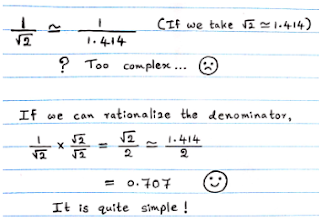 1/√2 ≃ 1/1.414 (If we take √2 ≃ 1.414)
? Too complex... ☹
If we can rationalize the denominator,
1/√2 × √2/√2 = √2/2 ≃ 1.414/2
= 0.707 ☺
It is quite simple!